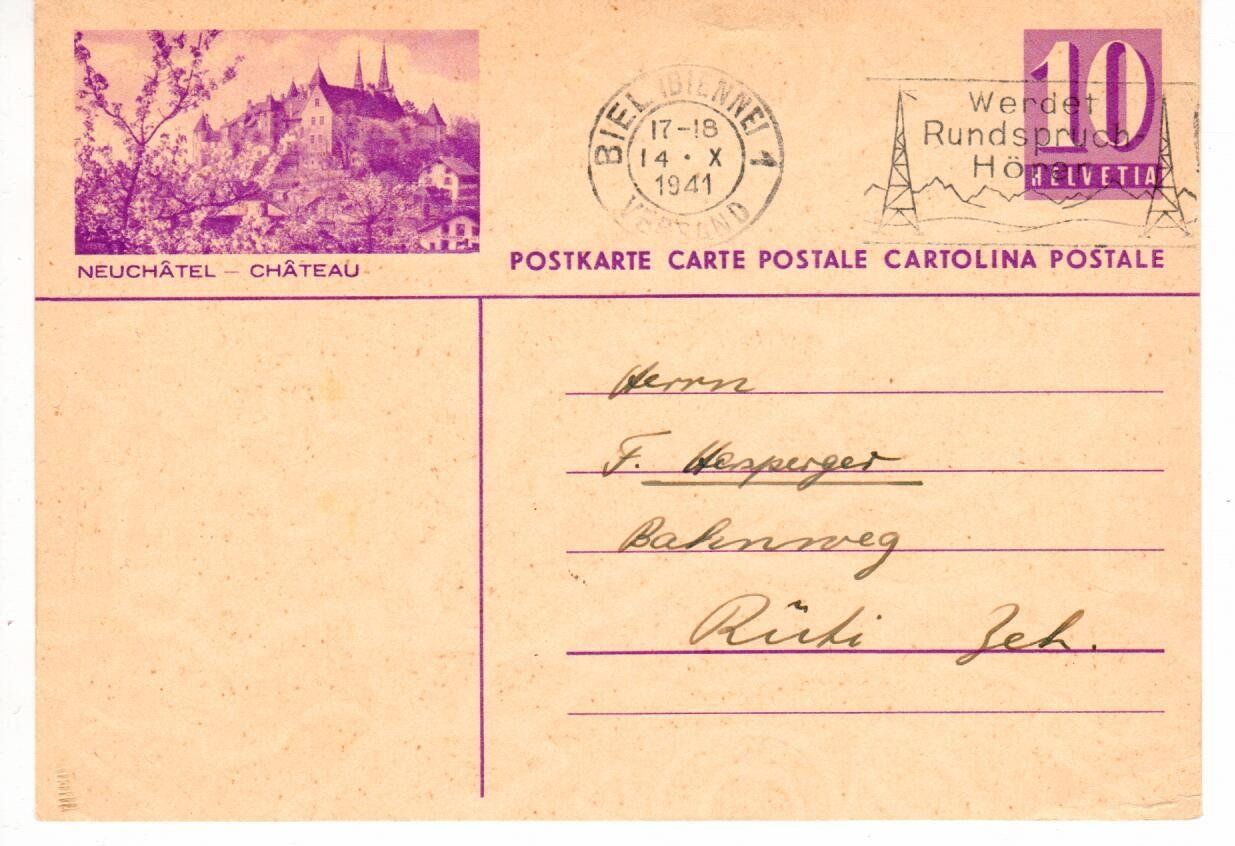 NEUCHÂTEL – CHÂTEAU
BIEL (BIENNE) 1
17-18
14 · X
1941
VERSAND
Werdet
Rundspruch
Hörer
10
HELVETIA
POSTKARTE CARTE POSTALE CARTOLINA POSTALE
Herrn
F. Hersperger
Bahnweg
Rüti Zch.